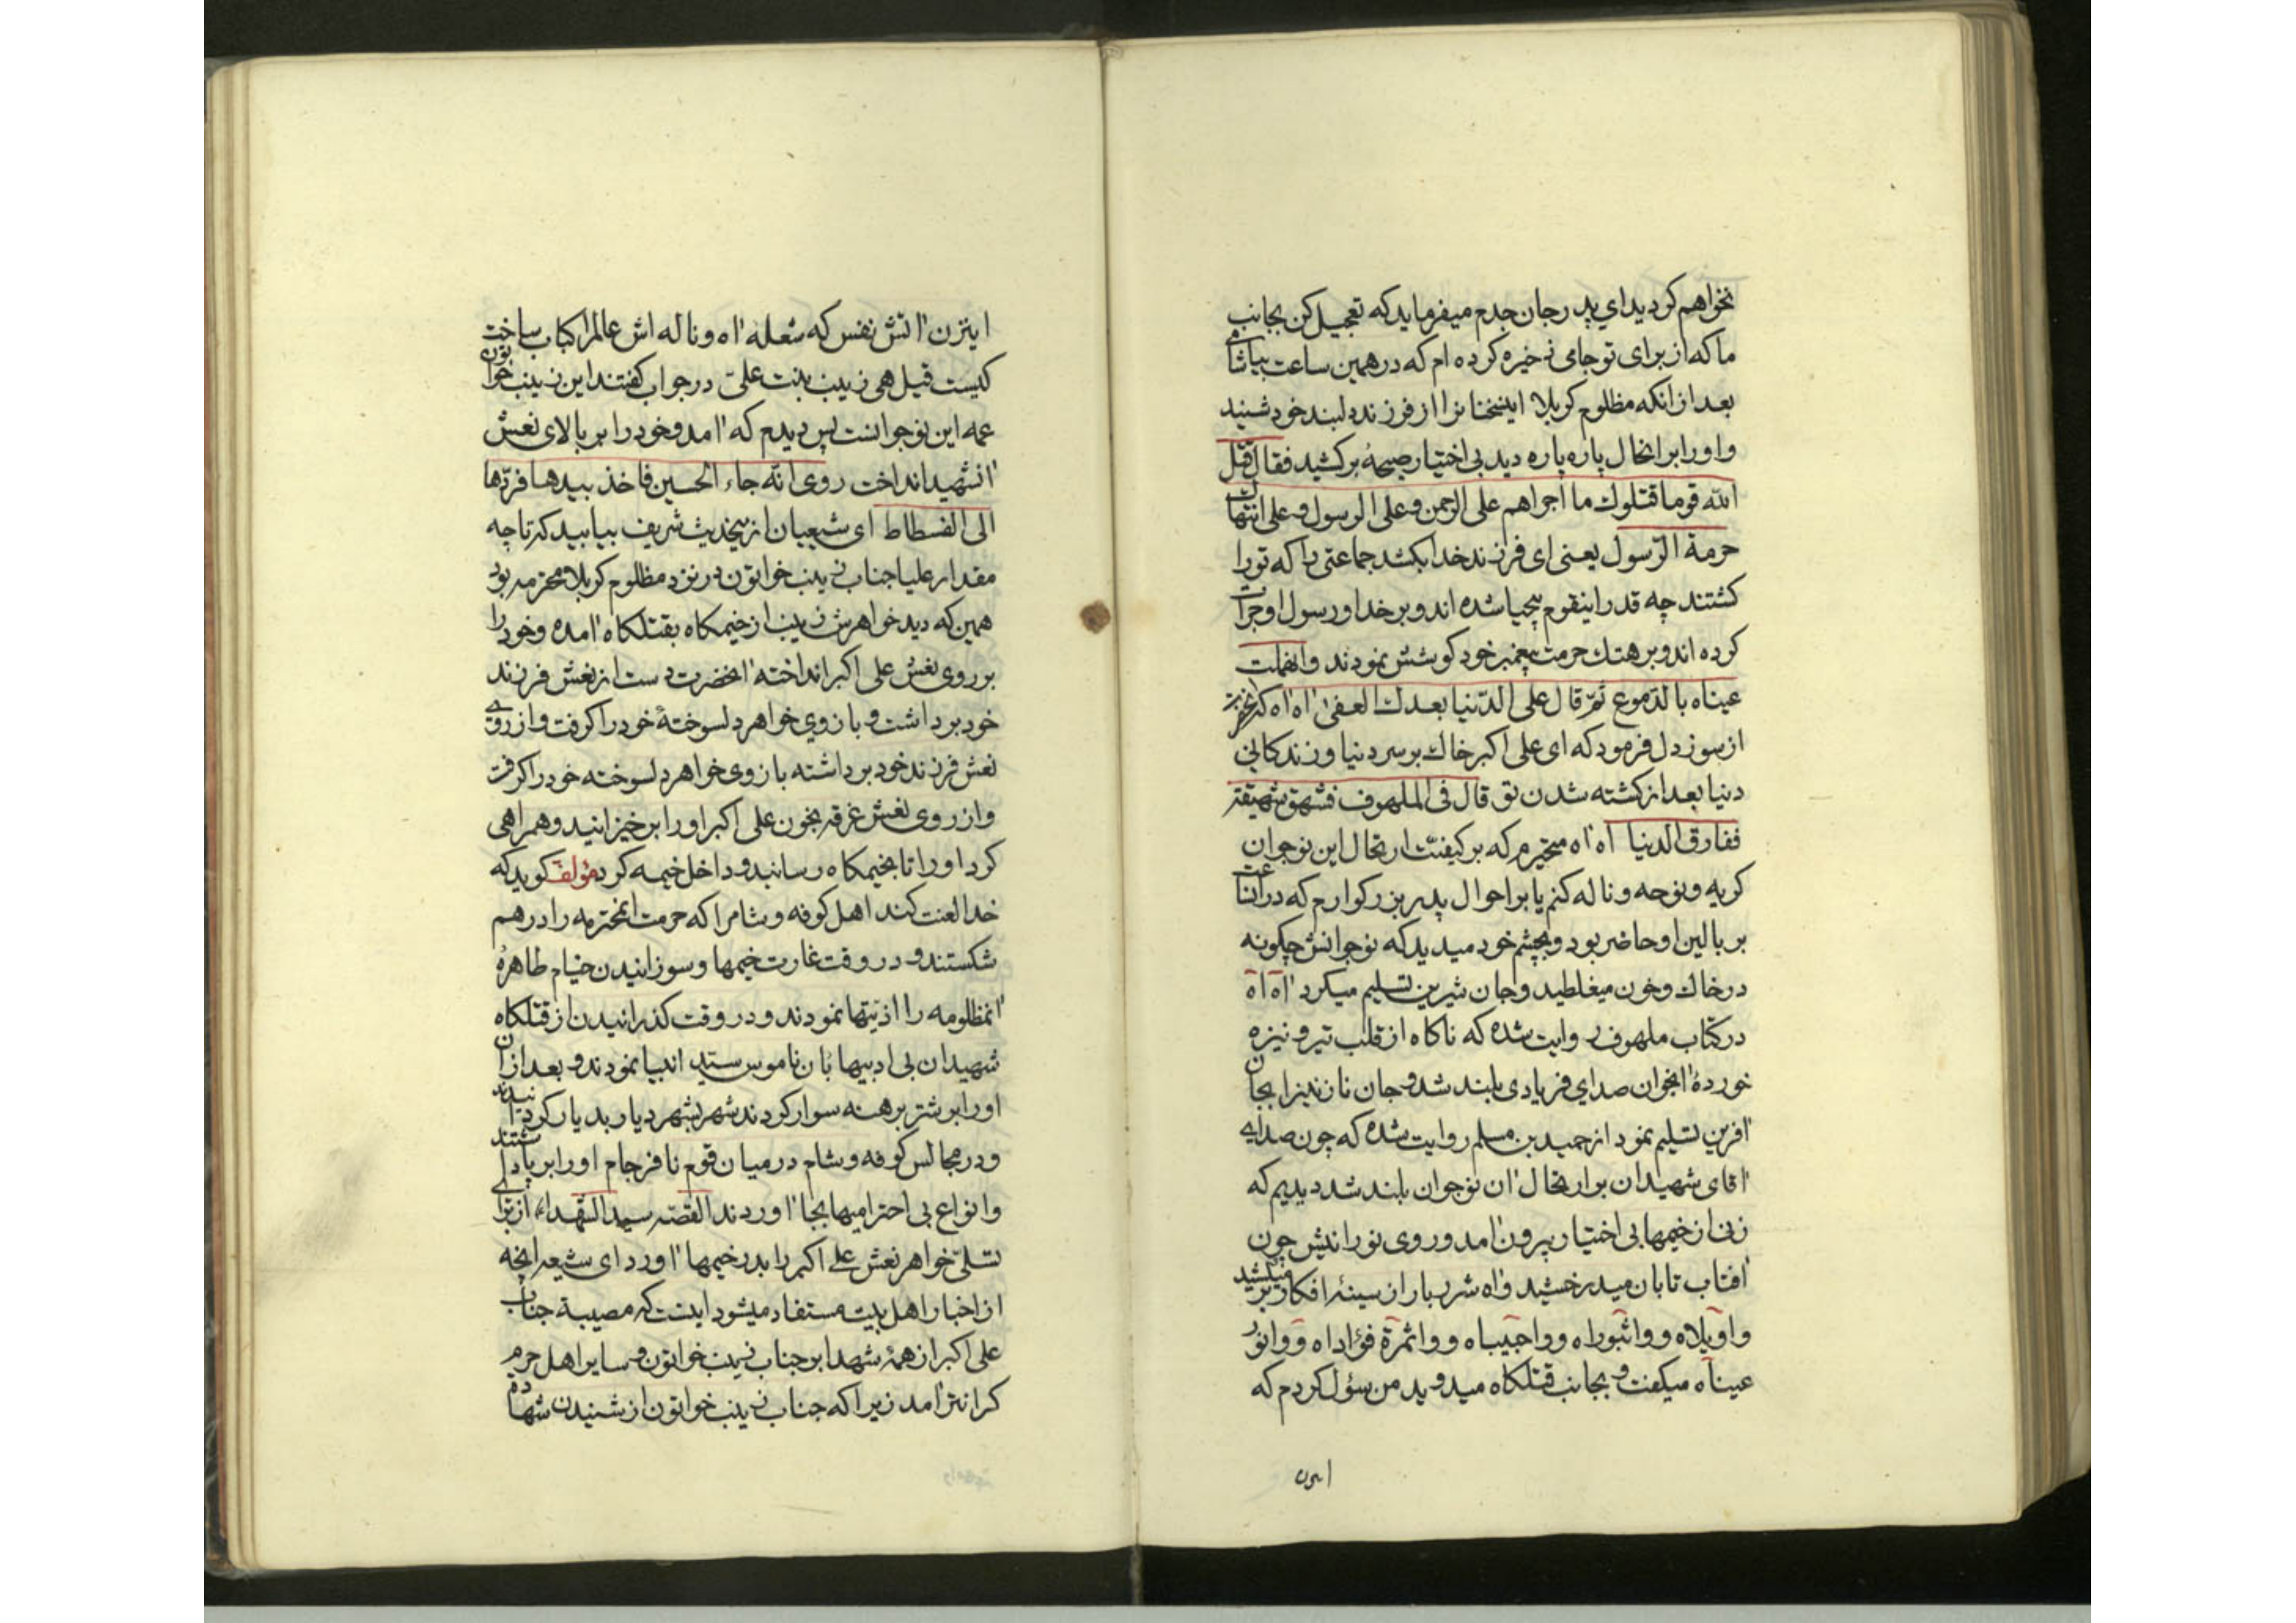 نخواهم کردید ای پدر جان جدم میفرماید که تعجیل کن بجانب
ما که از برای تو جامی ذخیره کرده ام که در همین ساعت بیاشامی
بعد از انکه مظلوم کربلا این سخنانرا از فرزند دلبند خود شنید
و او را بر انحال پاره پاره دید بی اختیار صیحهٔ برکشید فقال قتل
الله قوما قتلوك ما اجراهم علی الرحمن و علی الرسول و علی انتهاك
حرمة الرّسول یعنی ای فرزند خدا بکشد جماعتی را که تو را
کشتند چه قدر اینقوم بیحیا شده اند و بر خدا و رسول او جرات
کرده اند و بر هتك حرمت پیغمبر خود کوشش نمودند و انهملت
عیناه بالدّموع ثمّ قال علی الدّنیا بعدك العفی اه اه که
از سوز دل فرمود که ای علی اکبر خاك بر سر دنیا و زندکانی
دنیا بعد از کشته شدن تو قال فی الملهوف فشهق شهیقة
ففارق الدنیا اه اه متحیرم که بر کیفیّت ارتحال این نوجوان
کریه و نوحه و ناله کنم یا بر احوال پدر بزرکوارم که در انساعت
بر بالین او حاضر بود و بچشم خود میدید که نوجوانش چکونه
در خاك و خون میغلطید و جان شیرین تسلیم میکرد اه اه
در کتاب ملهوف روایت شده که ناکاه از قلب تیر و نیزه
خوردهٔ انجوان صدای فریادی بلند شد و جان نازنینرا بجان
افرین تسلیم نمود از حمید بن مسلم روایت شده که چون صدای
اقای شهیدان بر ارتحال ان نوجوان بلند شد دیدیم که
زنی از خیمها بی اختیار بیرون امد و روی نورانیش چون
افتاب تابان میدرخشید و اه شرر بار از سینهٔ افکار بر میکشید
واویلاه و واثبوراه و واحبیباه و واثمرة فؤاداه و وانور
عیناه میکفت و بجانب قتلکاه میدوید من سؤل کردم که
این
این زن اتش نفس که شعله اه و ناله اش عالمرا کباب ساخت
کیست قیل هی زینب بنت علیّ در جواب کفتند این زینب خواتون
عمه این نوجوانست پس دیدم که امد و خود را بر بالای نعش
انشهید انداخت روی انّه جاء الحسین فاخذ بیدها فردّها
الی الفسطاط ای شیعیان از این حدیث شریف بیابید که تا چه
مقدار علیا جناب زینب خواتون در نزد مظلوم کربلا محترمه بود
همین که دید خواهرش زینب از خیمکاه بقتلکاه امده و خود را
بر روی نعش علی اکبر انداخته انحضرت دست از نعش فرزند
خود برداشت و بازوی خواهر دلسوختهٔ خود را کرفت و از روی
نعش فرزند خود برداشته بازوی خواهر دلسوخته خود را کرفت
و از روی نعش غرقه بخون علی اکبر او را بر خیزانید و همراهی
کرد او را تا بخیمکاه رسانید و داخل خیمه کرد مؤلف کوید که
خدا لعنت کند اهل کوفه و شام را که حرمت انمحترمه را در هم
شکستند و در وقت غارت خیمها و سوزانیدن خیام طاهرهٔ
انمظلومه را اذیتها نمودند و در وقت کذرانیدن از قتلکاه
شهیدان بی ادبیها بان ناموس سید انبیا نمودند و بعد از ان
او را بر شتر برهنه سوار کردند شهر بشهر دیار بدیار کردانیدند
و در مجالس کوفه و شام در میان قوم نافرجام او را بر پا داشتند
و انواع بی احترامیها بجا اوردند القصّه سید الشّهداء از برای
تسلّی خواهر نعش علی اکبر را بدر خیمها اورد ای شیعه انچه
از اخبار اهل بیت مستفاد میشود اینست که مصیبة جناب
علی اکبر از همهٔ شهدا بر جناب زینب خواتون و سایر اهل حرم
کرانتر امد زیرا که جناب زینب خواتون از شنیدن شهادة